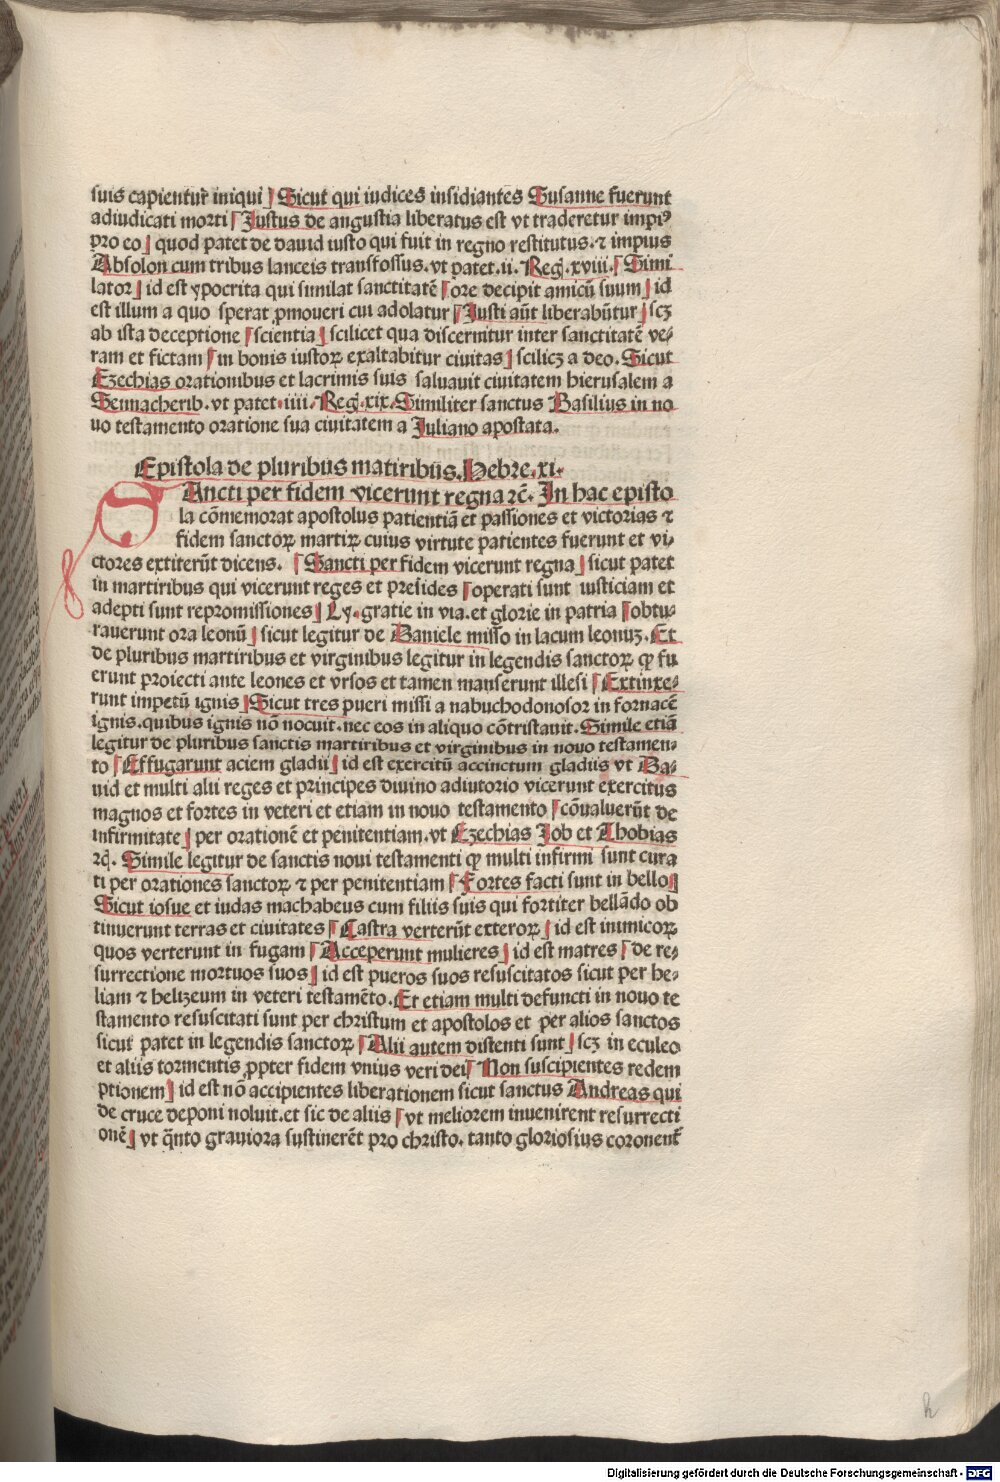 suis capientur̃ iniqui] Sicut qui iudices insidiantes Susanne fuerunt
adiudicati morti [Justus de angustia liberatus est vt traderetur impiꝰ
pro eo] quod patet de dauid iusto qui fuit in regno restitutus.⁊ impius
Absolon cum tribus lanceis transfossus.vt patet.ii. Reg̃.xviii.[Simi
lator] id est ypocrita qui simlat sanctitatẽ [ore decipit amicũ suum] id
est illum a quo sperat ꝓmoueri cui adolatur [Justi aũt liberabũtur] scꝫ
ab ista deceptione [scientia] scilicet qua discernitur inter sanctitatẽ ve⸗
ram et fictam [in bonis iustoꝝ exaltabitur ciuitas] scilicꝫ a deo. Sicut
Ezechias orationibus et lacrimis suis saluauit ciuitatem hierusalem a
Sennacherib.vt patet.iiii.Reg̃.xix.Similiter sanctus Basilius in no
uo testamento oratione sua ciuitatem a Juliano apostata.
Epistola de pluribus matiribũs.Hebre.xi.
SAncti per fidem vicerunt regna ⁊cẽ. In hac episto
la cõmemorat apostolus patientiã et passiones et victorias ⁊
fidem sanctoꝝ martiꝝ cuius virtute patientes fuerunt et vi⸗
ctores extiterũt dicens. [Sancti per fidem vicerunt regna] sicut patet
in martiribus qui vicerunt reges et presides [operati sunt iusticiam et
adepti sunt repromissiones] Ly.gratie in via.et glorie in patria [obtu⸗
rauerunt ora leonũ] sicut legitur de Daniele misso in lacum leonuꝫ.Et
de pluribus martiribus et virginibus legitur in legendis sanctoꝝ ꝙ fu
erunt proiecti ante leones et vrsos et tamen manserunt illesi [Extinxe⸗
runt impetũ ignis] Sicut tres pueri missi a nabuchodonosor in fornacẽ
ignis.quibus ignis nõ nocuit.nec eos in aliquo cõtristauit.Simile etiã
legitur de pluribus sanctis martiribus et virginibus in nouo testamen⸗
to [Effugarunt aciem gladii] id est exercitũ accinctum gladiis vt Da⸗
uid et multi alii reges et principes diuino adiutorio vicerunt exercitus
magnos et fortes in veteri et etiam in nouo testamento [cõualuerũt de
infirmitate] per orationẽ et penitentiam.vt Ezechias Job et Thobias
⁊q̃. Simile legitur de sanctis noui testamenti ꝙ multi infirmi sunt cura
ti per orationes sanctoꝝ ⁊ per penitentiam [Fortes facti sunt in bello]
Sicut iosue et iudas machabeus cum filiis suis qui fortiter bellãdo ob
tinuerunt terras et ciuitates [Castra verterũt exteroꝝ] id est inimicoꝝ
quos verterunt in fugam [Acceperunt mulieres] id est matres [de re⸗
surrectione mortuos suos] id est pueros suos resuscitatos sicut per he⸗
liam ⁊ helizeum in veteri testamẽto.Et etiam multi defuncti in nouo te
stamento resuscitati sunt per christum et apostolos et per alios sanctos
sicut patet in legendis sanctoꝝ [Alii autem distenti sunt] scꝫ in eculeo
et aliis tormentis ꝓpter fidem vnius veri dei[ Non suscipientes redem
ptionem] id est nõ accipientes liberationem sicut sanctus Andreas qui
de cruce deponi noluit.et sic de aliis [vt meliorem inuenirent resurrecti
onẽ] vt q̃nto grauiora sustinerẽt pro christo.tanto gloriosius coronent̃
h
Digitalisierung gefördert durch die Deutsche Forschungsgemeinschaft - DFG